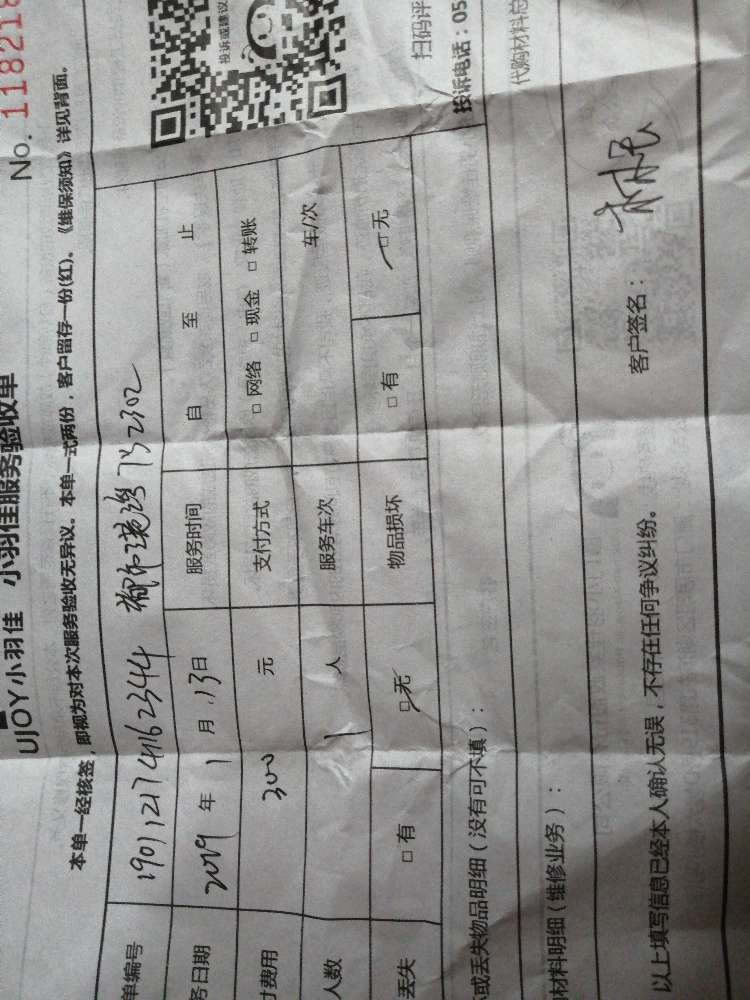 UJOY小羽佳 小羽佳服务验收单
No. 118218
本单一经核签，即视为对本次服务验收无异议。本单一式两份，客户留存一份(红)。《维保须知》详见背面。
单编号 190112174162344 7栋2302
务日期 2019年1月13日 服务时间 自 至 止
费用 300 元 支付方式 □网络 □现金 □转账
人数 1人 服务车次 车/次
丢失 □有 □无 物品损坏 □有 □无
或丢失物品明细（没有可不填）：
材料明细（维修业务）：
代购材料总
以上填写信息已经本人确认无误，不存在任何争议纠纷。
客户签名：
投诉或建议
扫码评
投诉电话：05